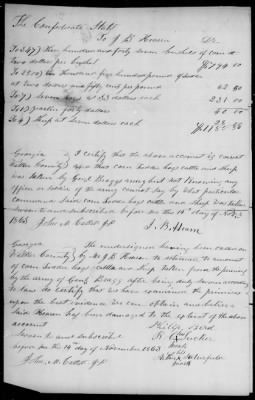 The Confederate States
To J B Hearn Dr.
To 347) three hundred and forty seven bushels of corn at
two dollars per bushel $794 00
To 2500) two thousand five hundred pounds of
at two dollars and fifty cents per pound 62 50
To 7) Seven hogs at 33 dollars each 231 00
forty dollars 40 00
To 4) sheep at seven dollars each 28 00
Georgia I certify that the above account is correct
Walker County and that said corn fodder hogs cattle and sheep was
taken by Genl Braggs army but not knowing any
officer or of the army cannot say by what particular
command said corn fodder hogs and sheep was taken
Sworn to and subscribed before me this 14th day of Nov
1863 John M J.P. J. B. Hearn
Georgia The undersigned having been called on
Walker County by Mr J B Hearn to estimate the amount
of corn fodder hogs cattle and sheep taken from the premises
by the army of Genl Bragg after being duly sworn according
to law do certify that we have examined the premises
upon the best evidence we can obtain and believe
said Hearn has been damaged to the extent of the above
account
Sworn to and subscribed
before me this 14th day of November 1863
John M J.P.
his
mark